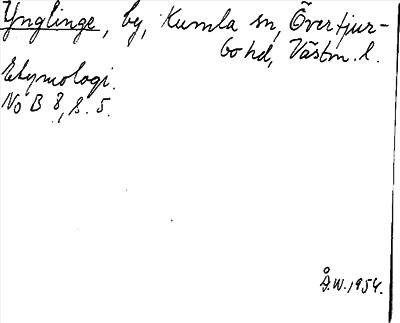 Ynglinge, by, Kumla sn, Övertjur-
bo hd, Västm. l.
Etymologi.
No B 8, s. 5.
Å.W. 1954.